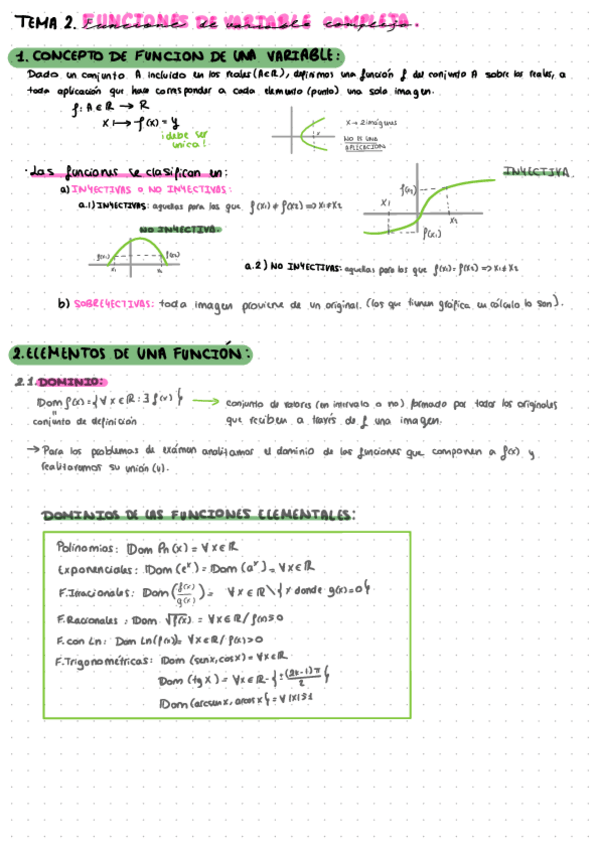 TEMA 2. FUNCIONES DE VARIABLE COMPLEJA.
1. CONCEPTO DE FUNCION DE UNA VARIABLE:
Dado un conjunto A incluido en los reales (A∈ℝ), definimos una función f del conjunto A sobre los reales, a
toda aplicación que hace corresponder a cada elemento (punto) una sola imagen.
f: A∈ℝ → ℝ
X ↦ f(x) = y
¡debe ser
única!
X → 2 imágenes
NO ES UNA
APLICACIÓN
· Las funciones se clasifican en:
INYECTIVA.
a) INYECTIVAS O NO INYECTIVAS:
a.1) INYECTIVAS: aquellas para las que f(x1) ≠ f(x2) => x1≠x2
X1
f(x2)
X2
f(x1)
NO INYECTIVA.
f(x1)
f(x2)
X1
X2
a.2) NO INYECTIVAS: aquellas para las que f(x1) = f(x2) => x1≠x2
b) SOBREYECTIVAS: toda imagen proviene de un original. (los que tienen gráfica en cálculo lo son).
2. ELEMENTOS DE UNA FUNCIÓN:
2.1. DOMINIO:
Dom f(x) = {∀x∈ℝ: ∃ f(x)} → conjunto de valores (en intervalo o no) formado por todos los originales
conjunto de definición que reciben a través de f una imagen.
→ Para los problemas de exámen analizamos el dominio de las funciones que componen a f(x) y
realizaremos su unión (u).
DOMINIOS DE LAS FUNCIONES ELEMENTALES:
Polinomios: Dom Pn(x) = ∀x∈ℝ
Exponenciales: Dom (eˣ) = Dom (aˣ) = ∀x∈ℝ
F. Irracionales: Dom (f(x)/g(x)) = ∀x∈ℝ \ {x donde g(x)=0}
F. Racionales: Dom √f(x) = ∀x∈ℝ / f(x)≥0
F. con Ln: Dom Ln(f(x)) = ∀x∈ℝ / f(x)>0
F. Trigonométricas: Dom (senx, cosx) = ∀x∈ℝ
Dom (tgx) = ∀x∈ℝ - {±(2n-1)π/2}
Dom (arcsenx, arcosx) = ∀ |x|≤1